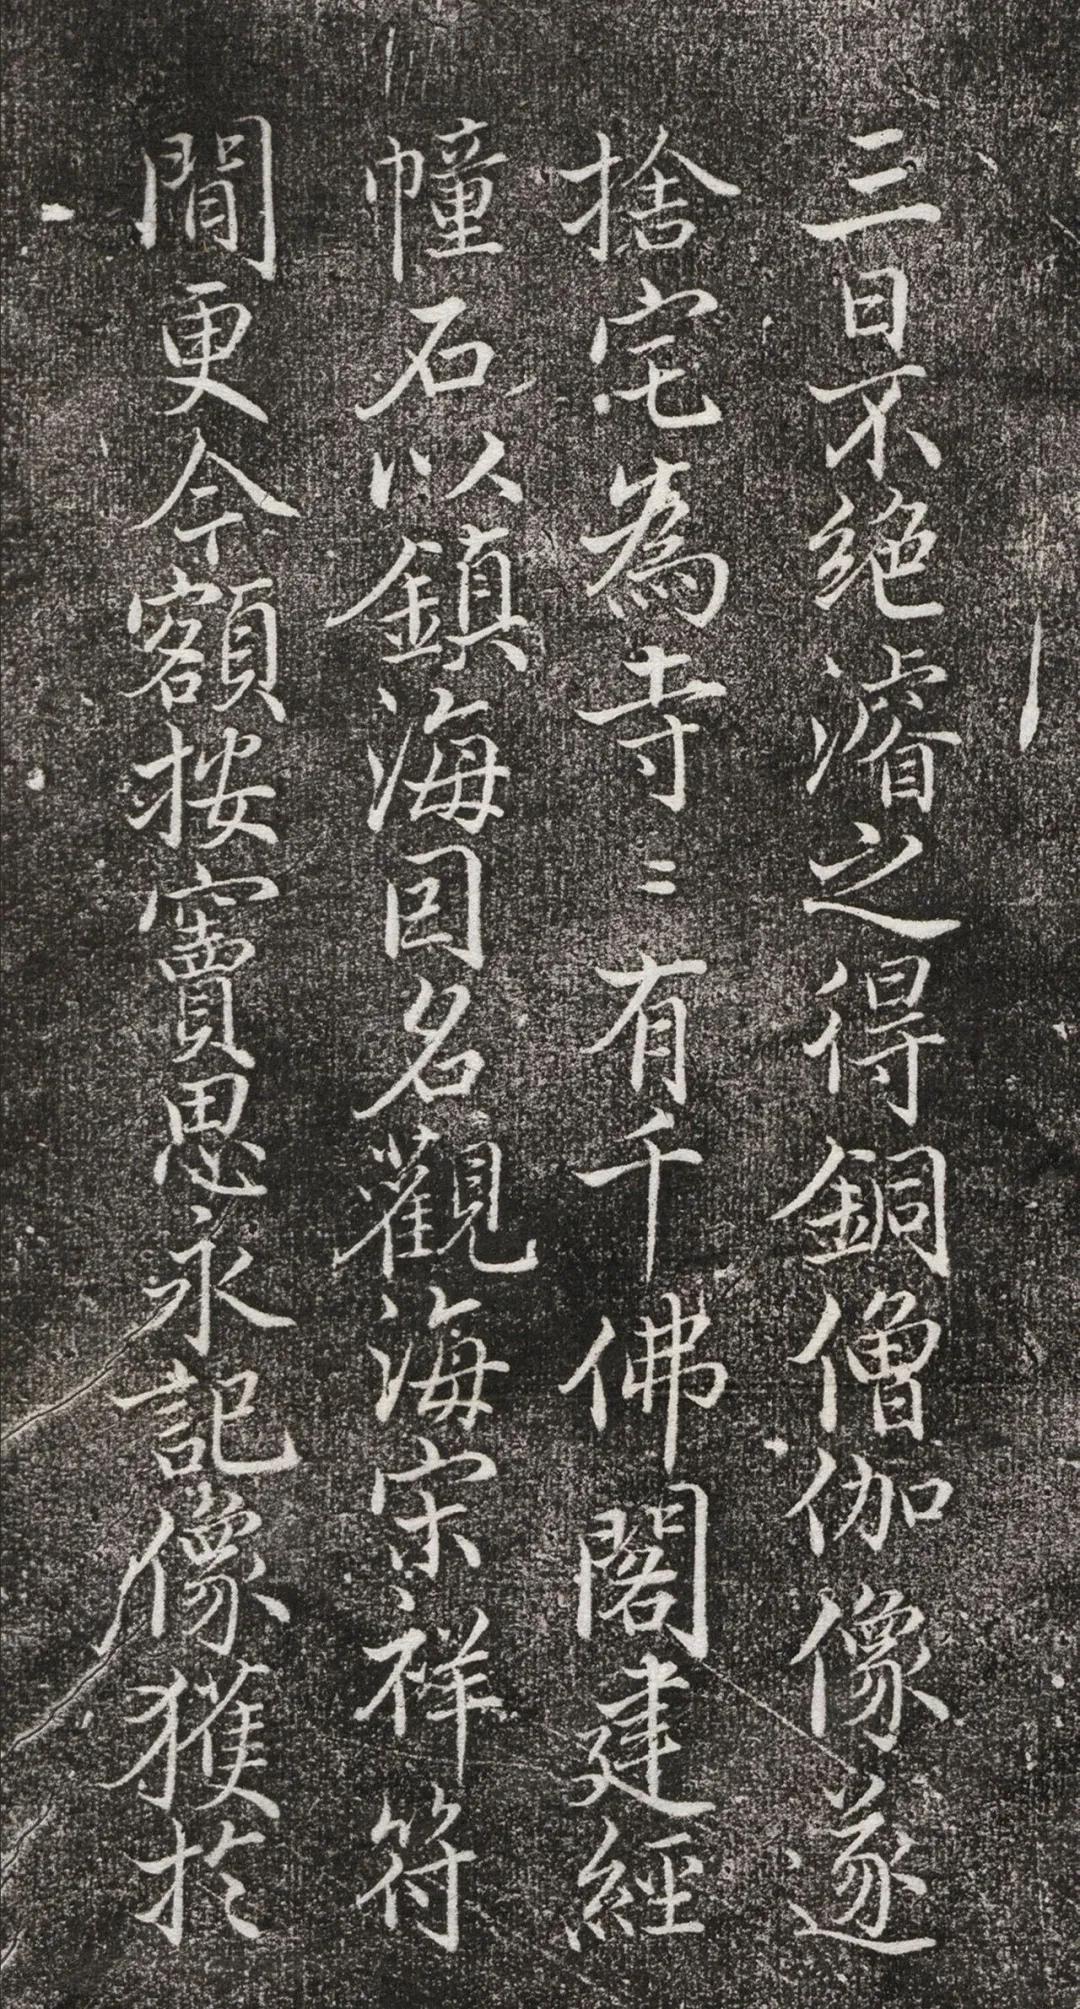 三日不絕濬之得銅僧伽像遂
捨宅為寺〻有千佛閣建經
幢石以鎮海因名觀海宋祥符
間更今額按竇思永記像獲於